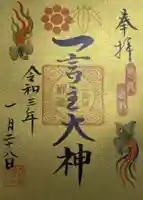 奉拝
一言主大神
令和三年
一月二十八日